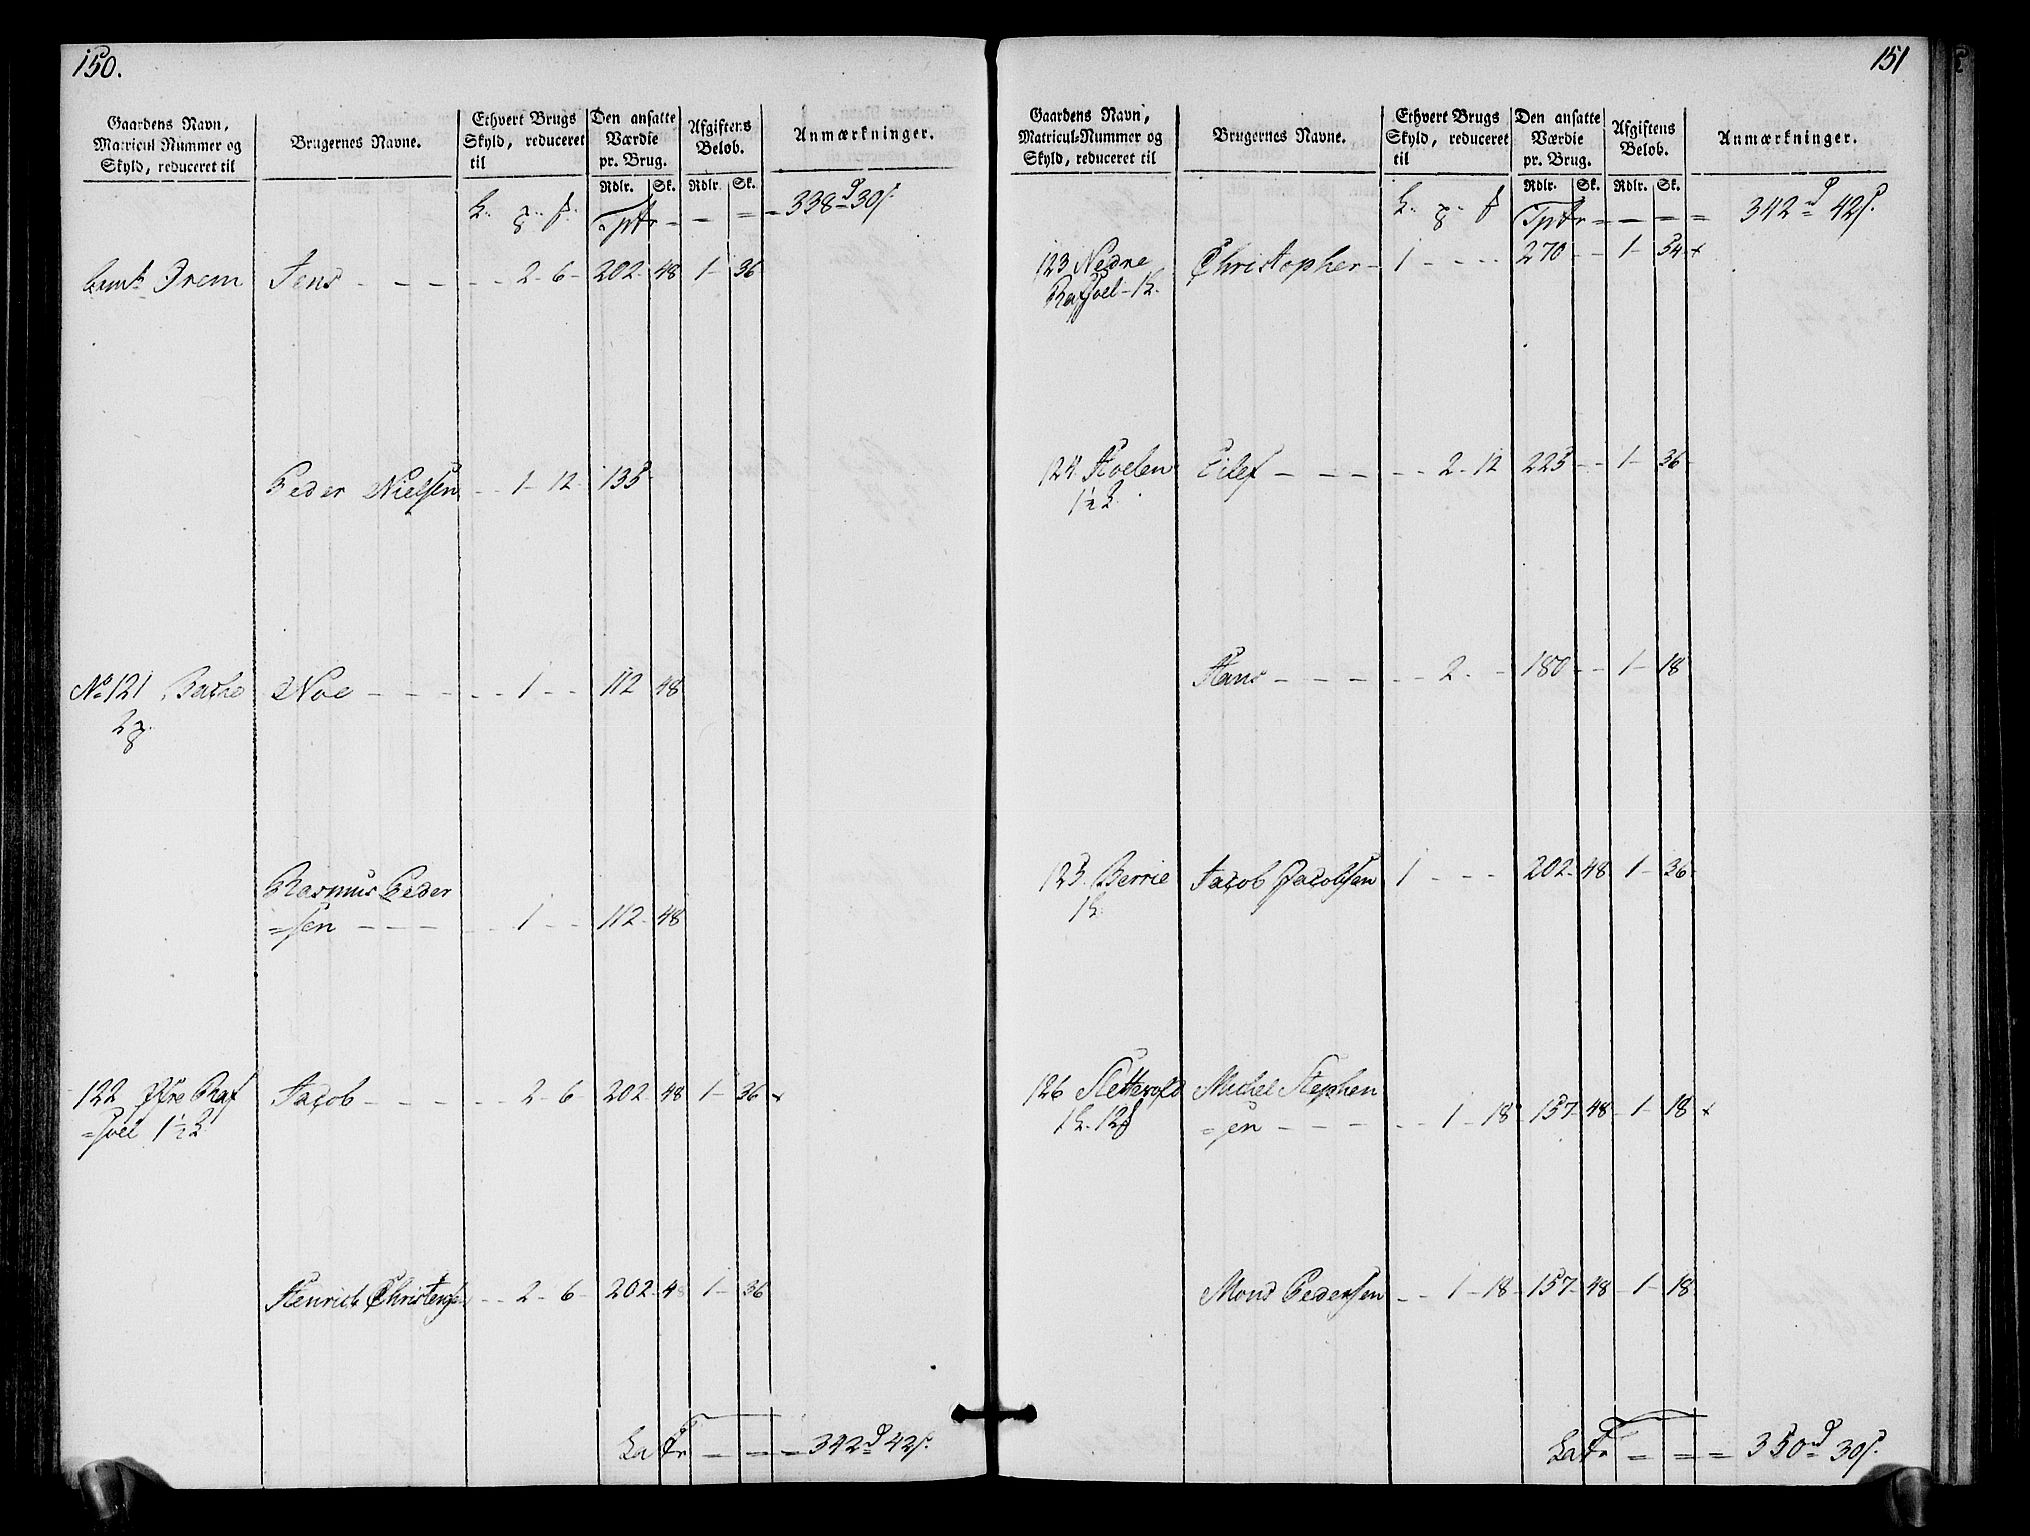 150.
Gaardens Navn,
Matricul Nummer og
Skyld, reduceret til
Brugernes Navne.
Ethvert Brugs
Skyld, reduceret
til
Den ansatte
Værdie
pr. Brug.
Afgiftens
Beløb.
Anmærkninger.
Rdlr. Sk. Rdlr. Sk.
Tptr = - = - 338 30
Drem Jens - - - - - 2 - 6 - 202 - 48 1 - 36
Peder Nielsen - - 1 - 12 - 135 -
No 121 Bache Noe - - - - - 1 - - 112 48
2
Rasmus Peder
=sen - - - - 1 - - 112 - 48
122 Øfre Raf Jacob - - - - - 2 - 6 - 202 - 48 1 - 36 x
=soel 1½
Henrich Christensen - - 2 - 6 - 202 - 48 1 - 36
Latr - = - 342 42
151
Gaardens Navn,
Matricul-Nummer og
Skyld, reduceret til
Brugernes Navne.
Ethvert Brugs
Skyld, reduceret
til
Den ansatte
Værdie
pr. Brug.
Afgiftens
Beløb.
Anmærkninger.
Rdlr. Sk. Rdlr. Sk.
Tptr = - - = 342 42
123 Nedre Christopher - 1 - - - - 270 - - 1 - 54 - x
Rafsoel - 1
124 Hoelen Eilef - - - - - 2 - 12 225 - - 1 - 36 -
1½
Hans - - - - - - 2 - - 180 - - 1 - 18
125. Berrie Jacob Jacobsen 1 - - - 202 - 48 1 - 36 -
1
126 Slettevold Michel Stephen
1 12 =sen - - - - - - 1 - 18 - 157 - 48 - 1 - 18 x
Mons Pedersen - - 1 - 18 - 157 - 48 - 1 - 18
Latr = = = 350 30